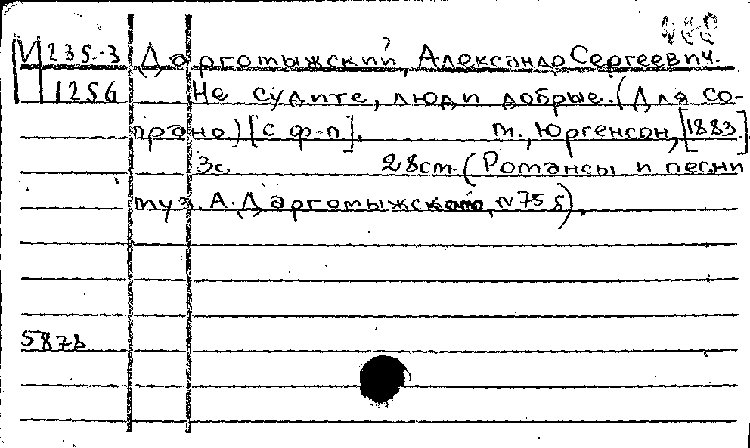 М 235-3 Даргомыжский, Александр Сергеевич.
1256 Не судите, люди добрые. (Для со-
прано) [с ф-п]. м., Юргенсон, [1883]
3с. 28см. (Романсы и песни
муз. А. Даргомыжского, № 75 б).
587b